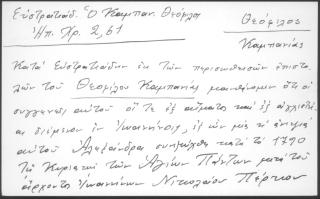 Εὐστρατιάδ. Ὁ Καμπαν. Θεόφιλος
Ἠπ. Χρ. 2, 61
Θεόφιλος
Καμπανίας
Κατά Εὐστρατιάδην ἐκ τῶν περισωθεισῶν ἐπιστο
λῶν τοῦ Θεοφίλου Καμπανίας μανθάνομεν ὅτι οἱ
συγγενεῖς αὐτοῦ οἵ τε ἐξ αἵματος καί ἐξ ἀγχιστεί
ας διέμενον ἐν Ἰωαννίνοις, ἐξ ὧν μία τις ἀνεψιά
αὐτοῦ Ἀλεξάνδρα συνεζεύχθη κατά τό 1790
Τῇ Κυριακῇ τῶν Ἁγίων Πάντων μετά τοῦ
ἄρχοντος Ἰωαννίνων Νικολάου